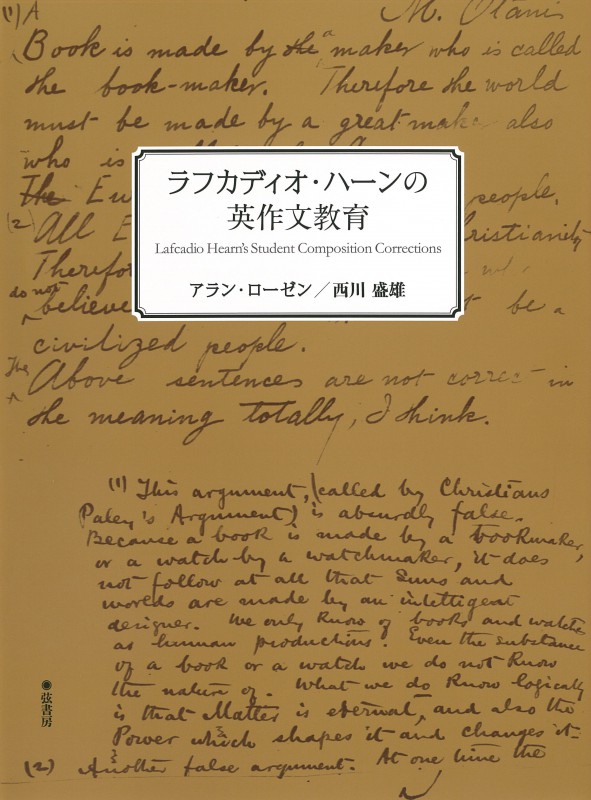 (1) A
M. Otani
Book is made by the a maker who is called
the book-maker. Therefore the world
must be made by a great maker also
who is
The Eu people.
(2) All E ristianity
Therefor
do not believe t be a
civilized people.
The Above sentences are not correct in
the meaning totally, I think.
ラフカディオ・ハーンの
英作文教育
Lafcadio Hearn's Student Composition Corrections
アラン・ローゼン／西川 盛雄
(1) This argument, (called by Christians
Paley's Argument) is absurdly false.
Because a book is made by a bookmaker,
or a watch by a watchmaker, it does
not follow at all that suns and
worlds are made by an intelligent
designer. We only know of books and watches
as human productions. Even the substance
of a book or a watch we do not know
the nature of. What we do know logically
is that Matter is eternal, and also the
Power which shapes it and changes it.
(2) Another false argument. At one time the
弦書房